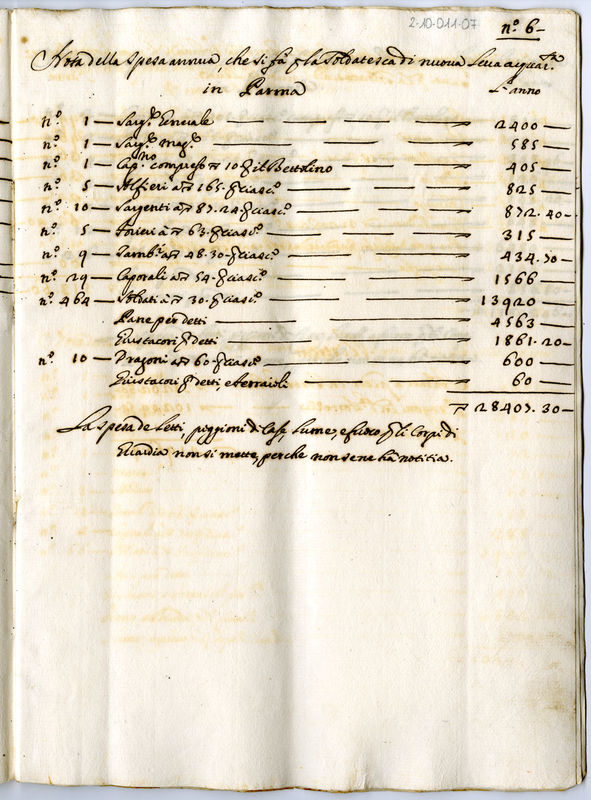 2-10-011-07
nº. 6-
Nota della spesa annua, che si fà p la Soldatesca di nuova Leva acquart.ta
in Parma L'anno
nº. 1 — Sarg.e Generale — 2400 —
nº. 1 — Sarg.e mag.e — 585 —
nº. 1 — Cap.no compreso 10 p il Bettolino — 405 —
nº. 5 — Alfieri à 165. p ciasc.º — 825 —
nº. 10 — Sargenti à 87.24 p ciasc.º — 872.40 —
nº. 5 — Forieri à 63. p ciasc.º — 315 —
nº. 9 — Tamb.i à 48.30 p ciasc.º — 434.30 —
nº. 29 — Caporali à 54. p ciasc.º — 1566 —
nº. 464 — Soldati à 30. p ciasc.º — 13920 —
Pane per detti — 4563 —
Giustacori p detti — 1861.20 —
nº. 10 — Dragoni à 60. p ciasc.º — 600 —
Giustacori p detti, e ferraioli — 60 —
28407.30 —
La spesa de Letti, piggioni di Case, Lume, e fuoco p li Corpi di
Guardia non si mette, perche non se ne hà notitia.